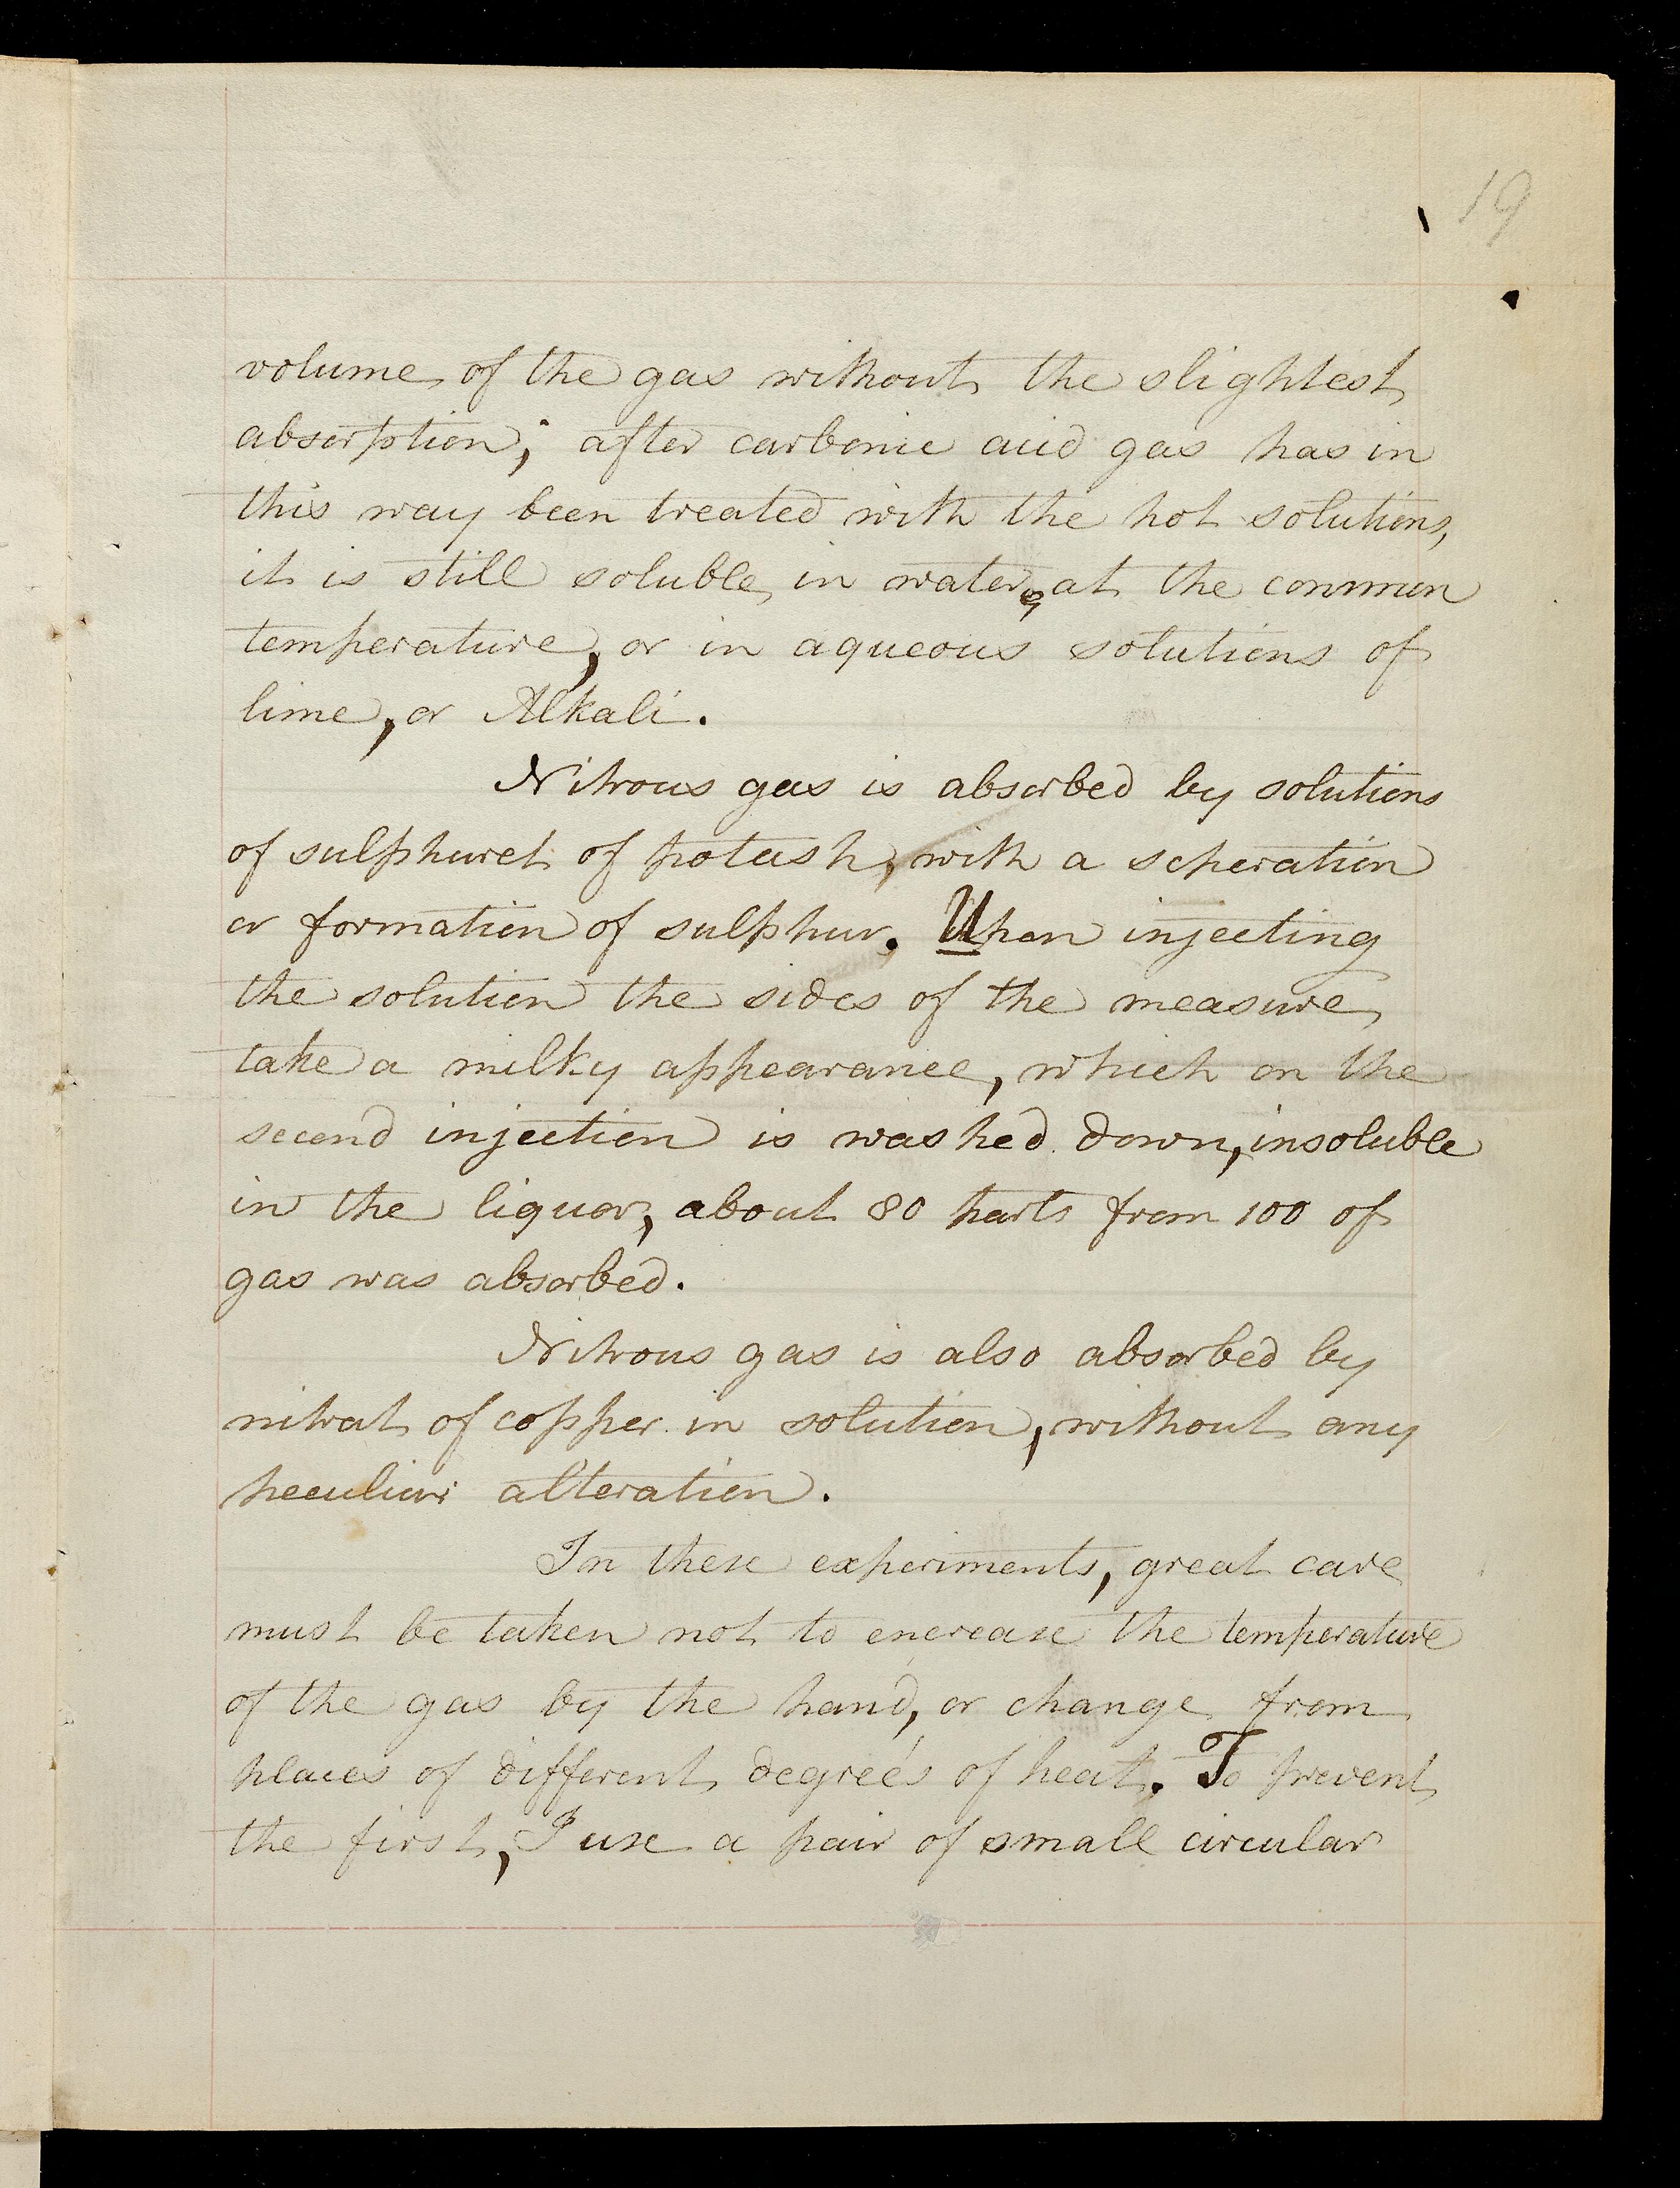 19
volume of the gas without the slightest
absorption; after carbonic acid gas has in
this way been treated with the hot solutions,
it is still soluble in water, at the common
temperature, or in aqueous solutions of
lime, or Alkali.
Nitrous gas is absorbed by solutions
of sulphuret of potash, with a seperation
or formation of sulphur. Upon injecting
the solution the sides of the measure
take a milky appearance, which on the
second injection is washed down, insoluble
in the liquor, about 80 parts from 100 of
gas was absorbed.
Nitrous gas is also absorbed by
nitrat of copper in solution, without any
peculiar alteration.
In these experiments, great care
must be taken not to encrease the temperature
of the gas by the hand, or change from
places of different degrees of heat. To prevent
the first, I use a pair of small circular